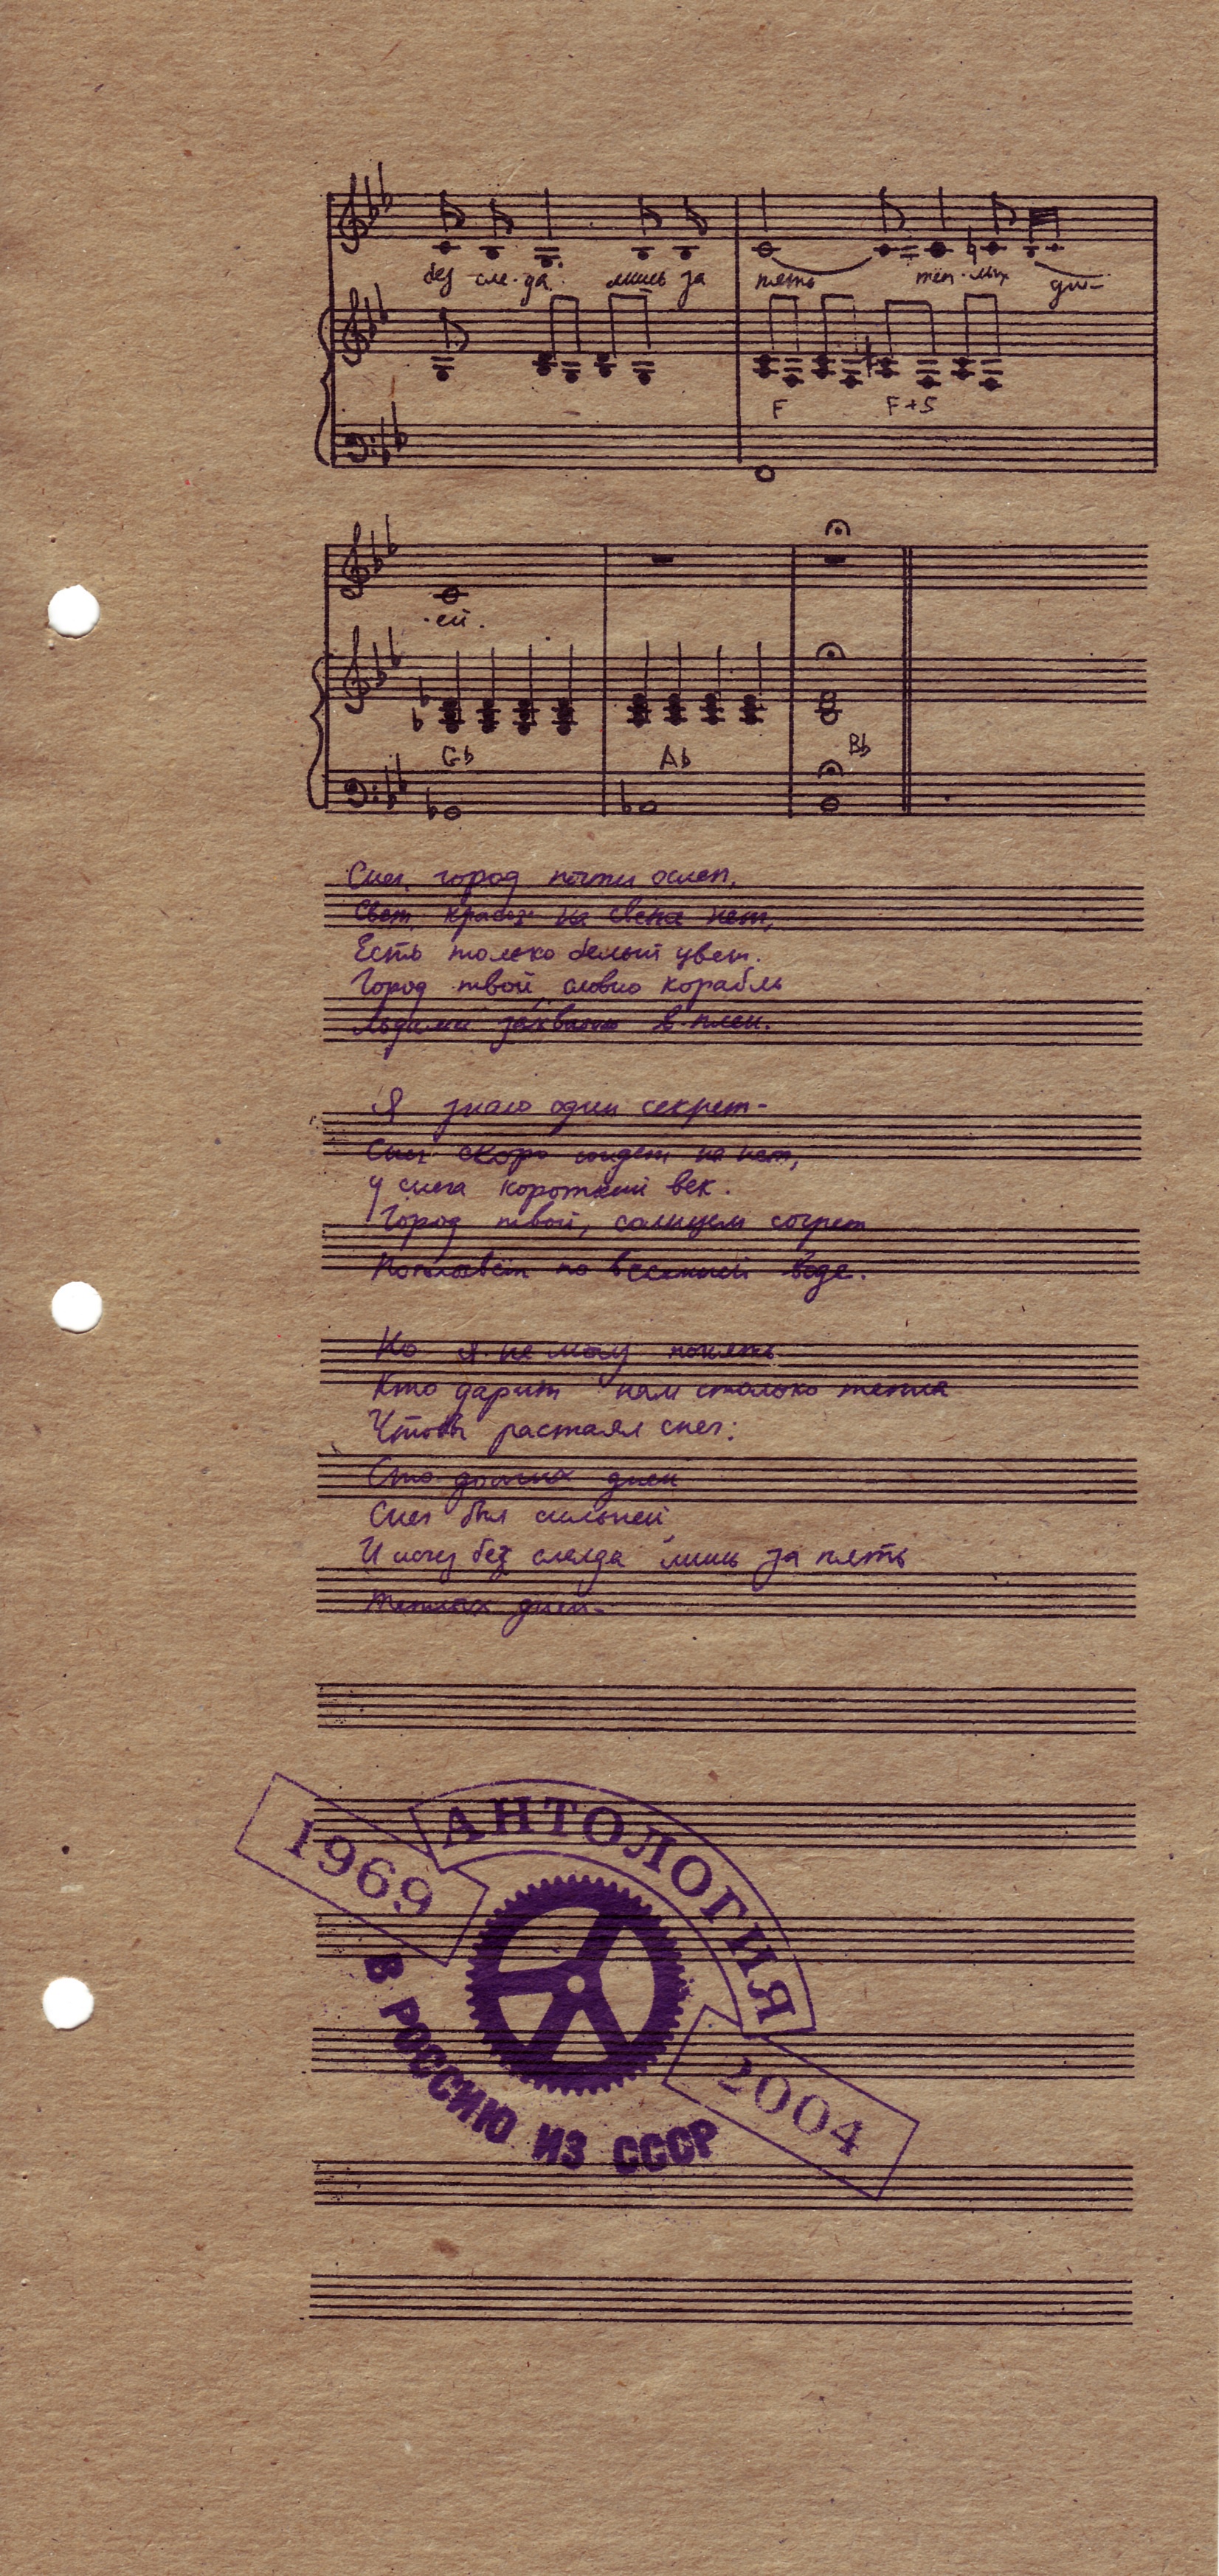 без сле-да. лишь за пять теп-лых дн-
F F+5
-ей.
Gb Ab Bb
Снег, город почти ослеп,
Свет, красок на свете нет,
Есть только белый цвет.
Город твой, словно корабль
Льдами захвачен в плен.
Я знаю один секрет-
Снег скоро сойдет на нет,
У снега короткий век.
Город твой, солнцем согрет
Поплывёт по весенней воде.
Но я не могу понять
Кто дарит нам столько тепла
Чтобы растаял снег:
Сто долгих дней
Снег был сильней,
И исчез без следа лишь за пять
теплых дней-
1969
АНТОЛОГИЯ
В РОССИЮ ИЗ СССР
2004